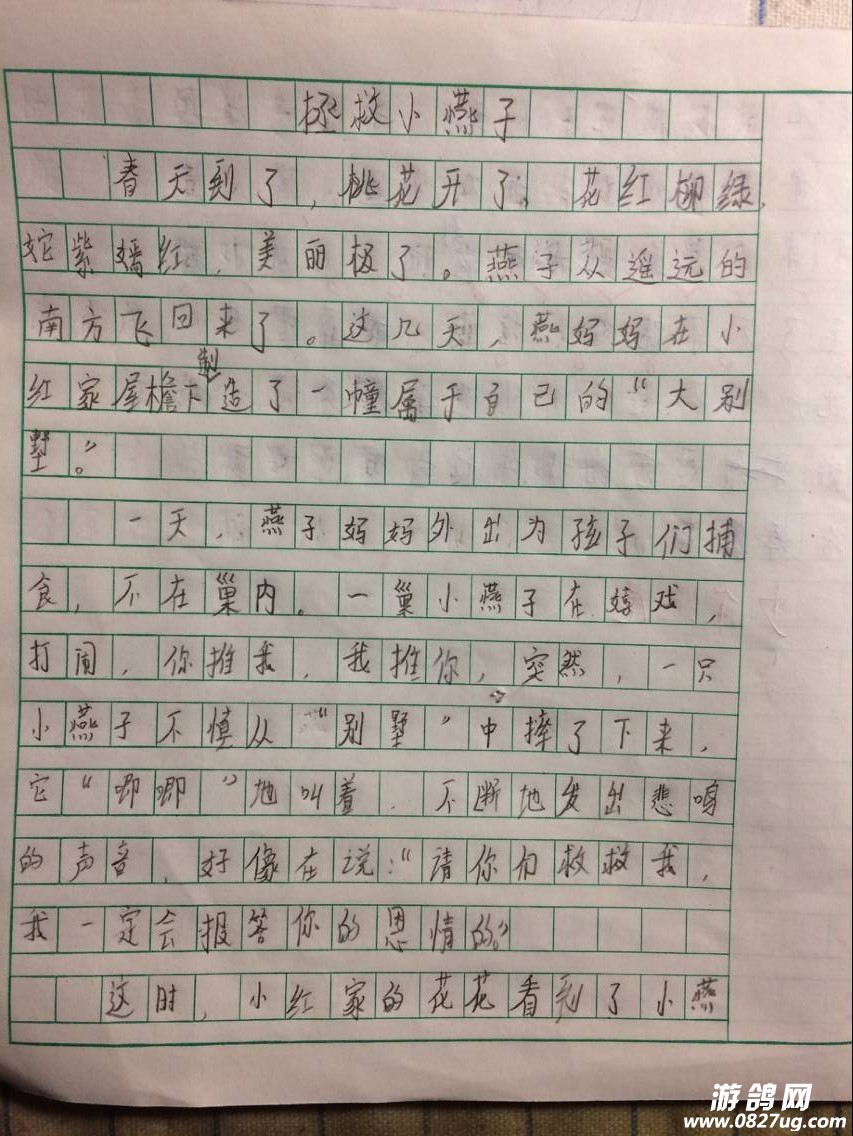 拯救小燕子
春天到了，桃花开了，花红柳绿，
姹紫嫣红，美丽极了。燕子从遥远的
南方飞回来了。这几天，燕妈妈在小
制
红家屋檐下造了一幢属于自己的“大别
墅”。
一天，燕子妈妈外出为孩子们捕
食，不在巢内。一巢小燕子在嬉戏，
打闹，你推我，我推你，突然，一只
小燕子不慎从“别墅”中摔了下来，
它“唧唧”地叫着，不断地发出悲鸣
的声音，好像在说：“请你们救救我，
我一定会报答你的恩情的。”
这时，小红家的花花看到了小燕
游鸽网
www.0827ug.com